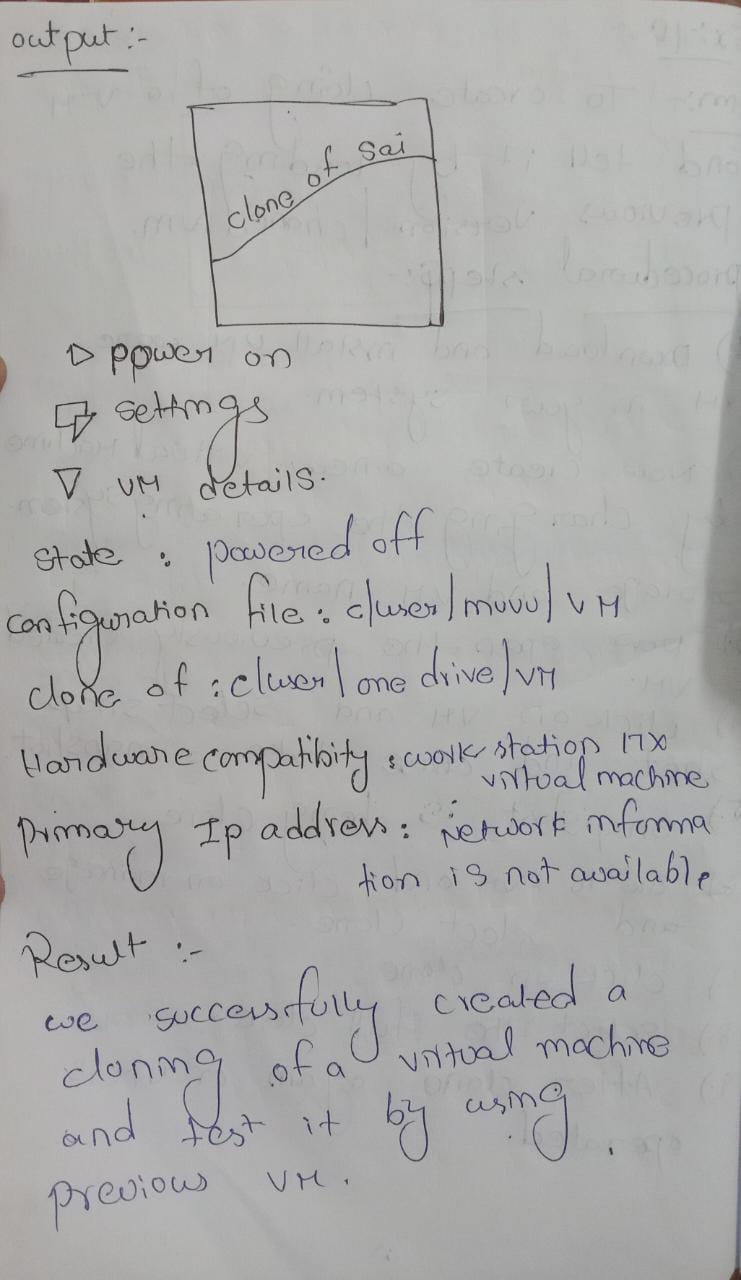 output :-
clone of Sai
▷ power on
settings
▽ VM details.
State : powered off
configuration file : c/user/muvu/VM
clone of : c/user/one drive/VM
Hardware compatibity : work station 17x
virtual machine
primary Ip address : Network informa
tion is not available
Result :-
we successfully created a
cloning of a virtual machine
and test it by using
previous VM.